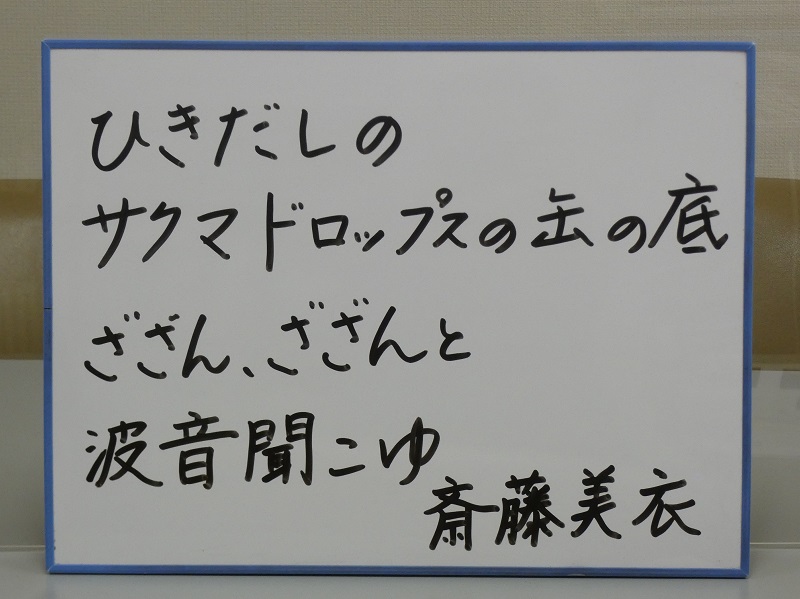 ひきだしの
サクマドロップスの缶の底
ざざん、ざざんと
波音聞こゆ
斎藤美衣